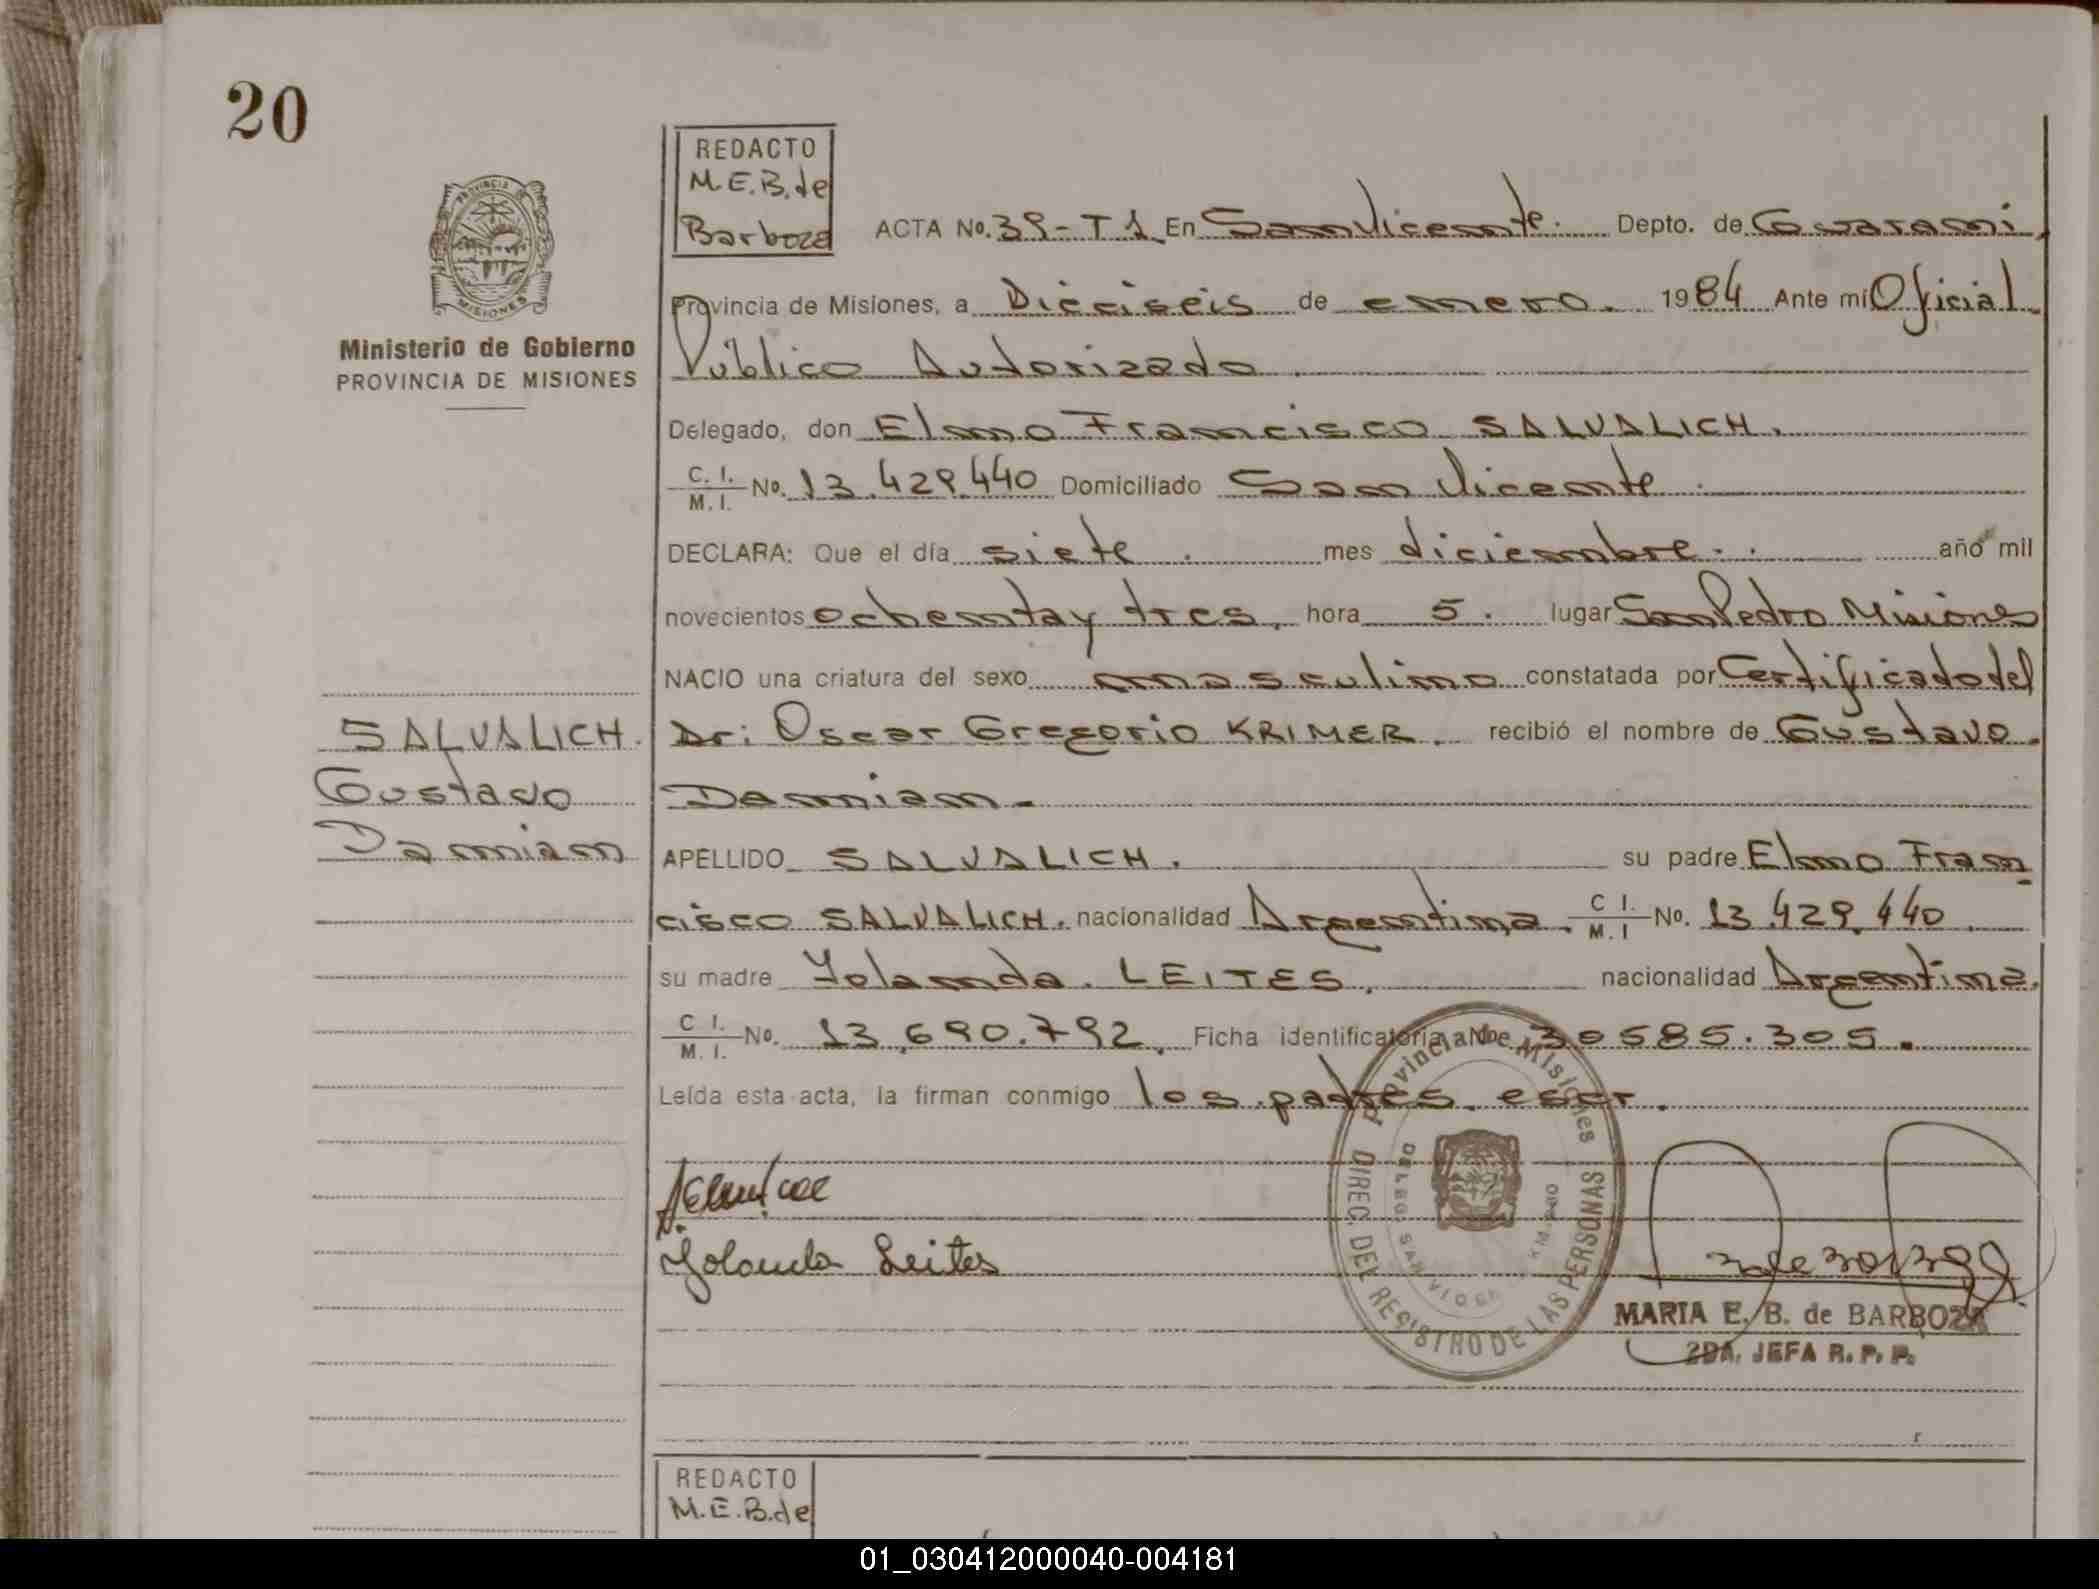 20
PROVINCIA DE
MISIONES
Ministerio de Gobierno
PROVINCIA DE MISIONES
REDACTO
M.E.B. de
Barboza
ACTA No. 39-T1 En San Vicente. Depto. de Guarani,
Provincia de Misiones, a Dieciseis de enero. 1984 Ante mi Oficial
Público Autorizado
Delegado, don Elmo Francisco SALVALICH.
C. I. / M. I. No. 13.429.440 Domiciliado San Vicente
DECLARA: Que el día siete. mes diciembre. año mil
novecientos ochenta y tres, hora 5. lugar San Pedro Misiones
NACIO una criatura del sexo masculino constatada por Certificado del
Dr: Oscar Gregorio KRIMER. recibió el nombre de Gustavo
Damian.
SALVALICH.
Gustavo
Damian
APELLIDO SALVALICH. su padre Elmo Fran
cisco SALVALICH. nacionalidad Argentina. C I. / M. I No. 13.429.440
su madre Yolanda. LEITES, nacionalidad Argentina.
C I. / M. I. No. 13.690.792, Ficha identificatoria No 30585.305.
Leída esta acta, la firman conmigo los padres.
Yolanda Leites
Provincia de Misiones
DIREC. DEL REGISTRO DE LAS PERSONAS
MARIA E. B. de BARBOZA
2DA. JEFA R. P. P.
REDACTO
M.E.B. de
01_030412000040-004181